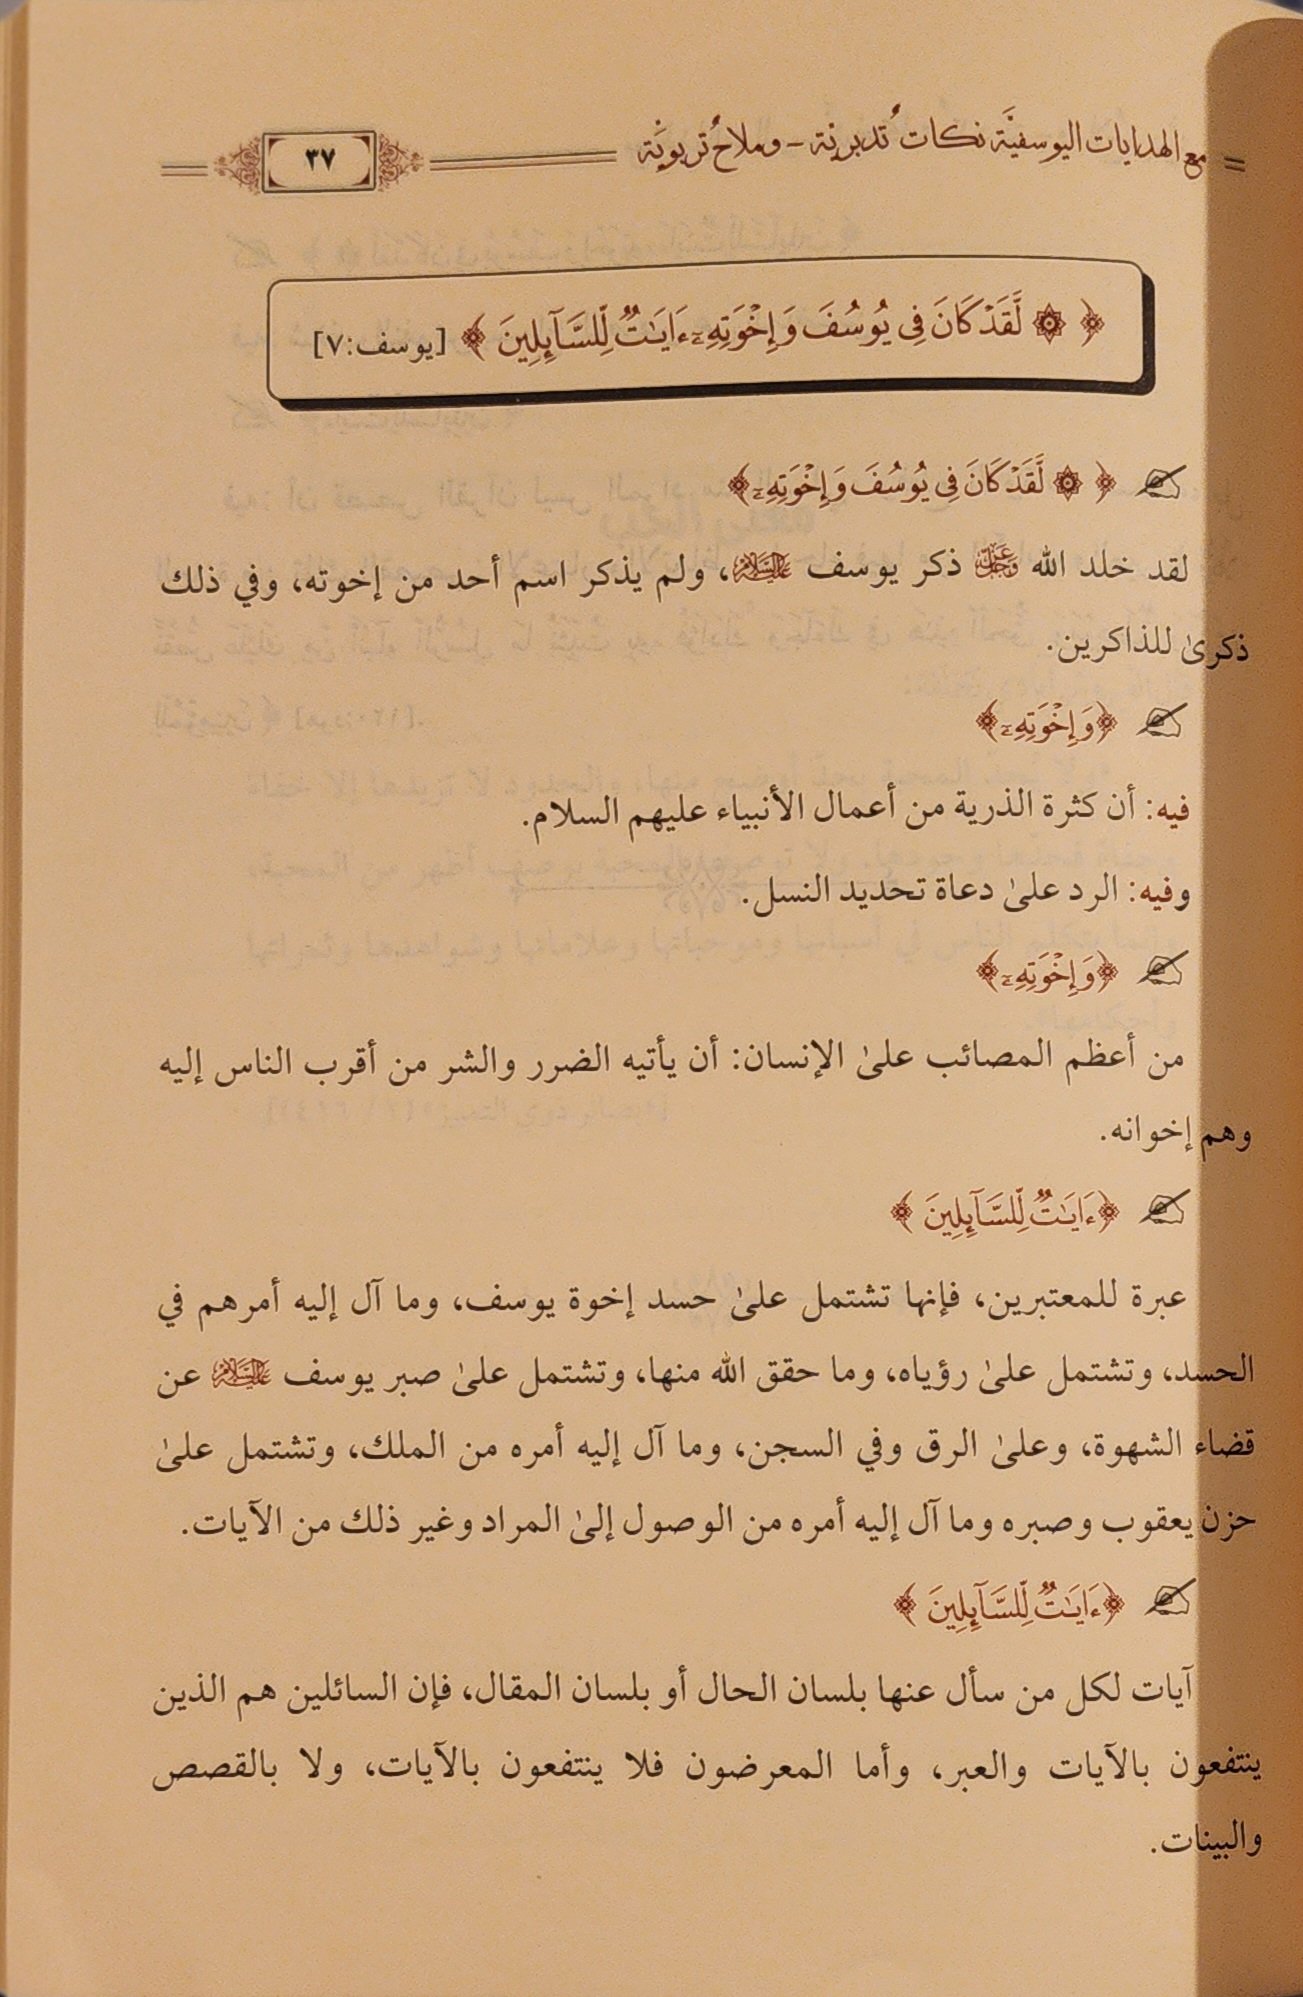 مع الهدايات اليوسفيَّة نكاتٌ تدبريَّة - وملامحُ تربويَّة
٣٧
﴿ ۞ لَّقَدْ كَانَ فِى يُوسُفَ وَإِخْوَتِهِۦٓ ءَايَٰتٌ لِّلسَّآئِلِينَ ﴾ [يوسف:٧]
﴿ ۞ لَّقَدْ كَانَ فِى يُوسُفَ وَإِخْوَتِهِۦٓ﴾
لقد خلد الله عَزَّوَجَلَّ ذكر يوسف عَلَيْهِالسَّلَامُ، ولم يذكر اسم أحد من إخوته، وفي ذلك
ذكرىٰ للذاكرين.
﴿وَإِخْوَتِهِۦٓ﴾
فيه: أن كثرة الذرية من أعمال الأنبياء عليهم السلام.
وفيه: الرد علىٰ دعاة تحديد النسل.
﴿وَإِخْوَتِهِۦٓ﴾
من أعظم المصائب علىٰ الإنسان: أن يأتيه الضرر والشر من أقرب الناس إليه
وهم إخوانه.
﴿ءَايَٰتٌ لِّلسَّآئِلِينَ ﴾
عبرة للمعتبرين، فإنها تشتمل علىٰ حسد إخوة يوسف، وما آل إليه أمرهم في
الحسد، وتشتمل علىٰ رؤياه، وما حقق الله منها، وتشتمل علىٰ صبر يوسف عَلَيْهِالسَّلَامُ عن
قضاء الشهوة، وعلىٰ الرق وفي السجن، وما آل إليه أمره من الملك، وتشتمل علىٰ
حزن يعقوب وصبره وما آل إليه أمره من الوصول إلىٰ المراد وغير ذلك من الآيات.
﴿ءَايَٰتٌ لِّلسَّآئِلِينَ ﴾
آيات لكل من سأل عنها بلسان الحال أو بلسان المقال، فإن السائلين هم الذين
ينتفعون بالآيات والعبر، وأما المعرضون فلا ينتفعون بالآيات، ولا بالقصص
والبينات.